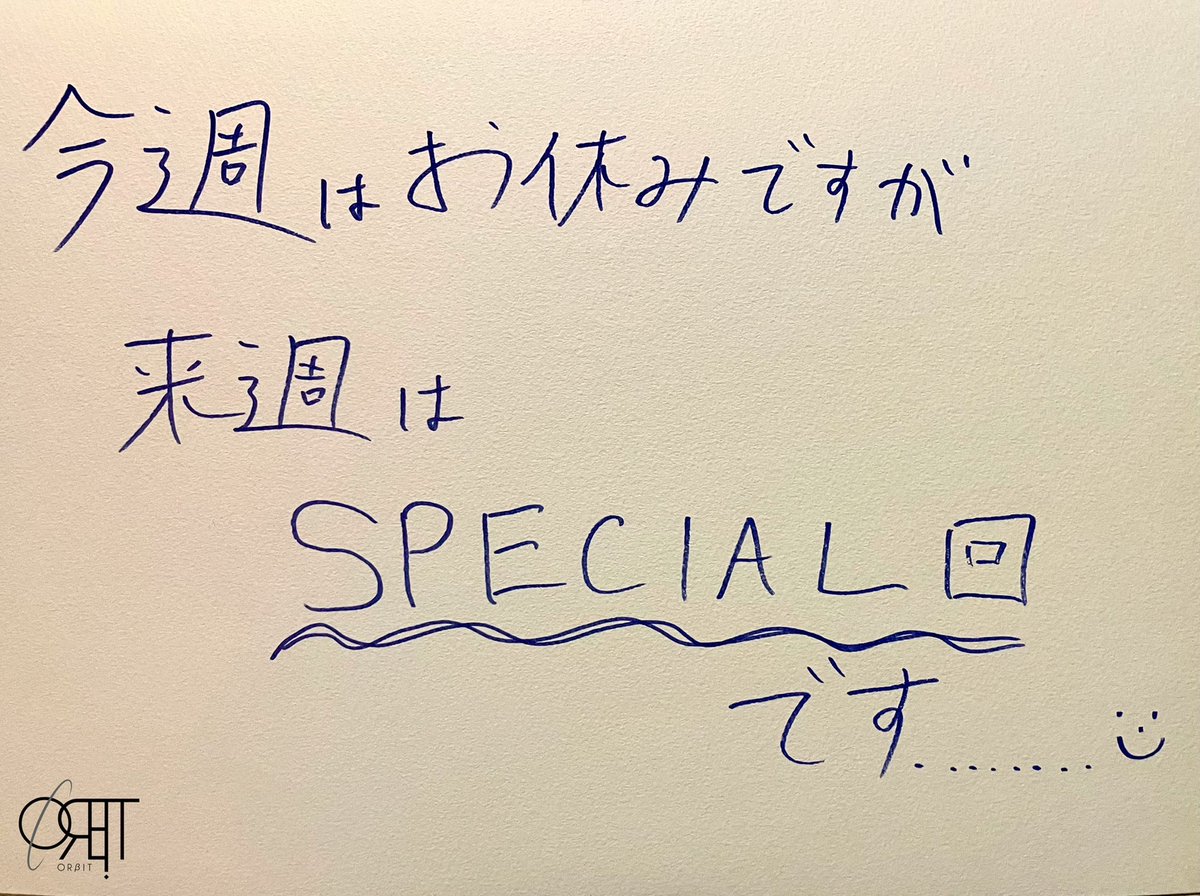 今週はお休みですが
来週は
SPECIAL回
です........
ORβIT
ORβIT